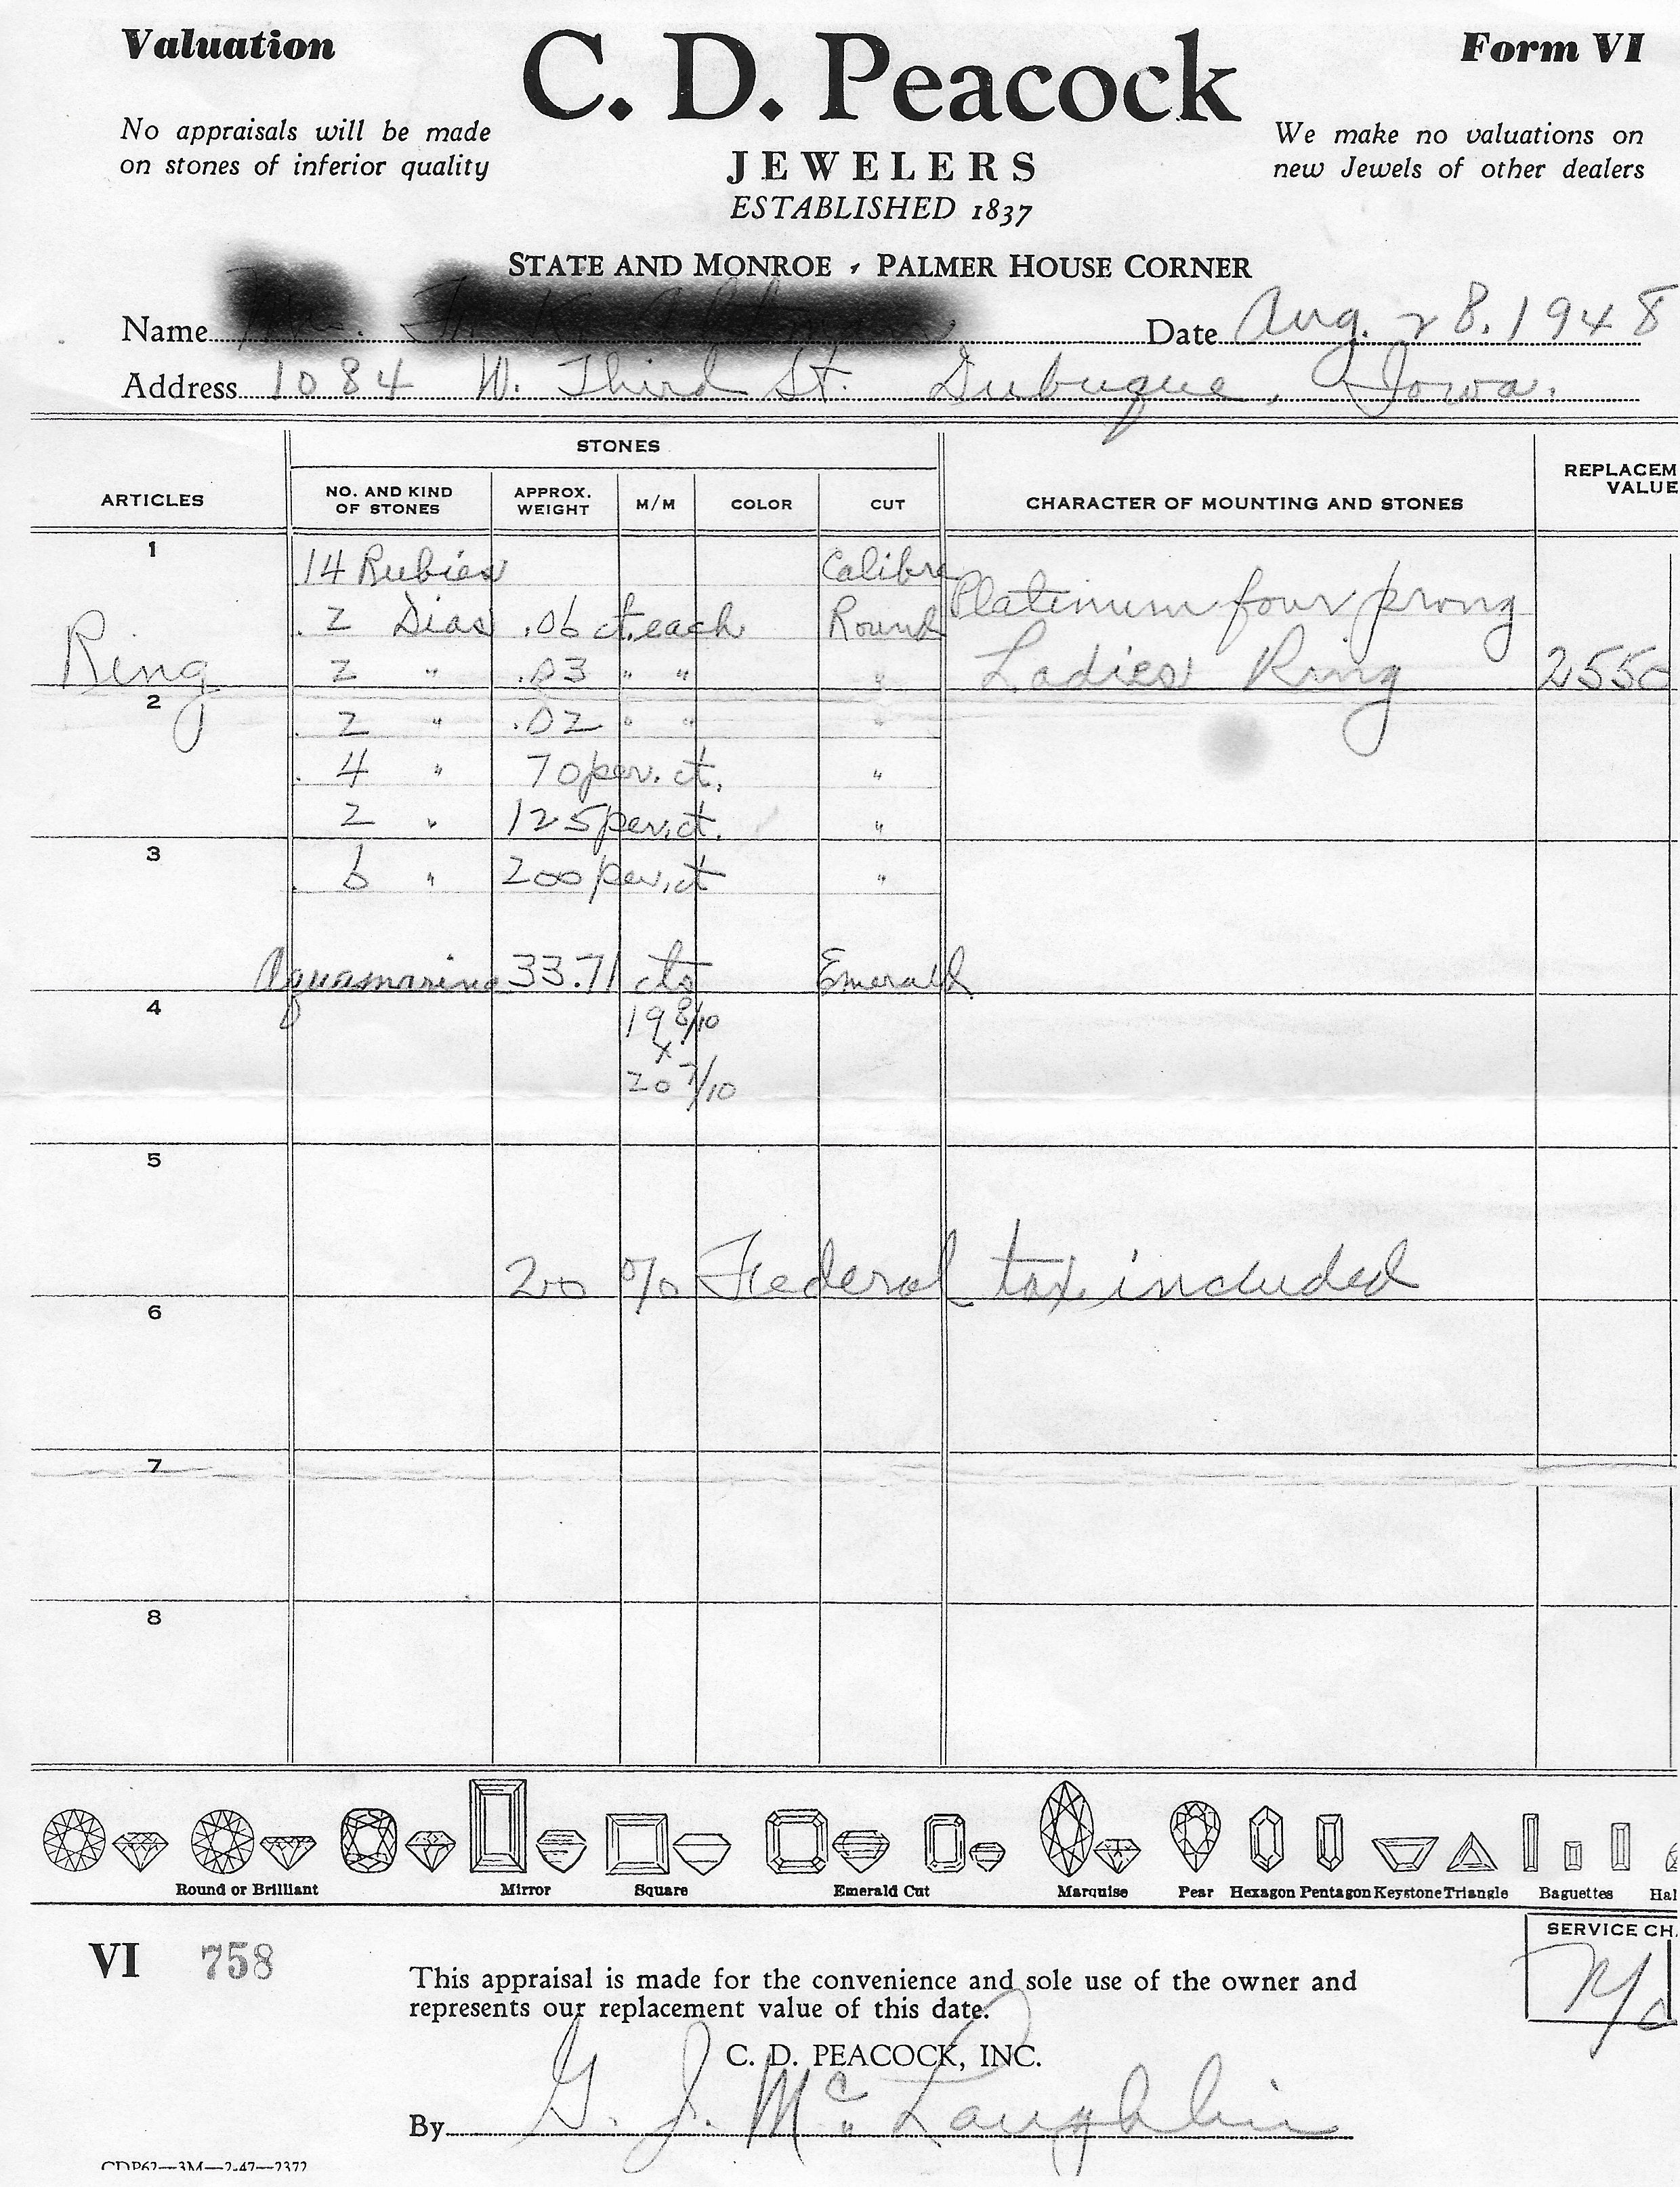 Valuation
Form VI
C. D. Peacock
No appraisals will be made
on stones of inferior quality
We make no valuations on
new Jewels of other dealers
JEWELERS
ESTABLISHED 1837
STATE AND MONROE , PALMER HOUSE CORNER
Name
Date Aug. 28. 1948
Address 1084 W. Third St. Dubuque, Iowa.
STONES
ARTICLES
NO. AND KIND
OF STONES
APPROX.
WEIGHT
M/M
COLOR
CUT
CHARACTER OF MOUNTING AND STONES
REPLACEM
VALUE
1
14 Rubies Calibre
2 Dias .06 ct. each Round Platinum four prong
Ring 2 " .03 " " " Ladies Ring 2550
2
2 " .02 " " "
4 " 70 per. ct. "
2 " 125 per. ct. "
3
6 " 200 per. ct "
Aquamarine 33.71 cts Emerald
4
19 8/10
x
20 7/10
5
20 % Federal tax included
6
7
8
Round or Brilliant Mirror Square Emerald Cut Marquise Pear Hexagon Pentagon Keystone Triangle Baguettes Hal
SERVICE CH
VI 758
This appraisal is made for the convenience and sole use of the owner and
represents our replacement value of this date.
C. D. PEACOCK, INC.
By G. J. McLaughlin
CDP62—3M—2-47—2372